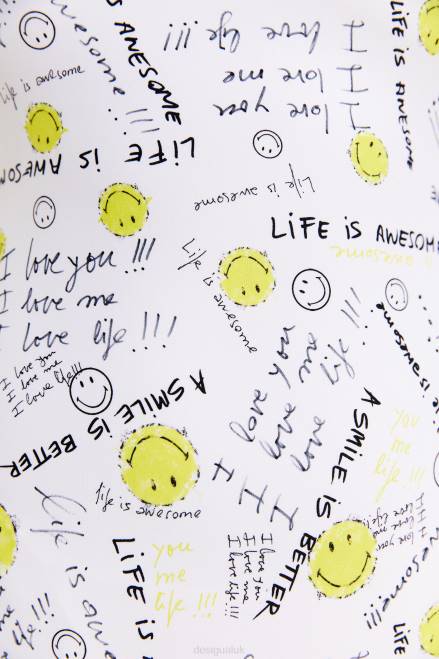 awesome
S AWESOME !!!
LiFE iS AWESOME
I love life !!!
I love me
I love you
life is awesome
LiFE iS AWESOM
Life is awesome
LiFE iS AWESOME
awesome
I love you !!!
I love me
I love life !!!
Life is awesome
is awesome
I love you
I love me
I love life !!!
I love you
I love me
I love life !!!
A SMiLE iS BETTER
A SMiLE iS BETTER
you
me
life !!!
life is awesome
I love you
I love me
I love life !!!
Life is awe
LiFE iS
you
me
life !!!
I love you
I love me
I love life !!!
awesome !!!
life !!!
LiFE
desigualuk